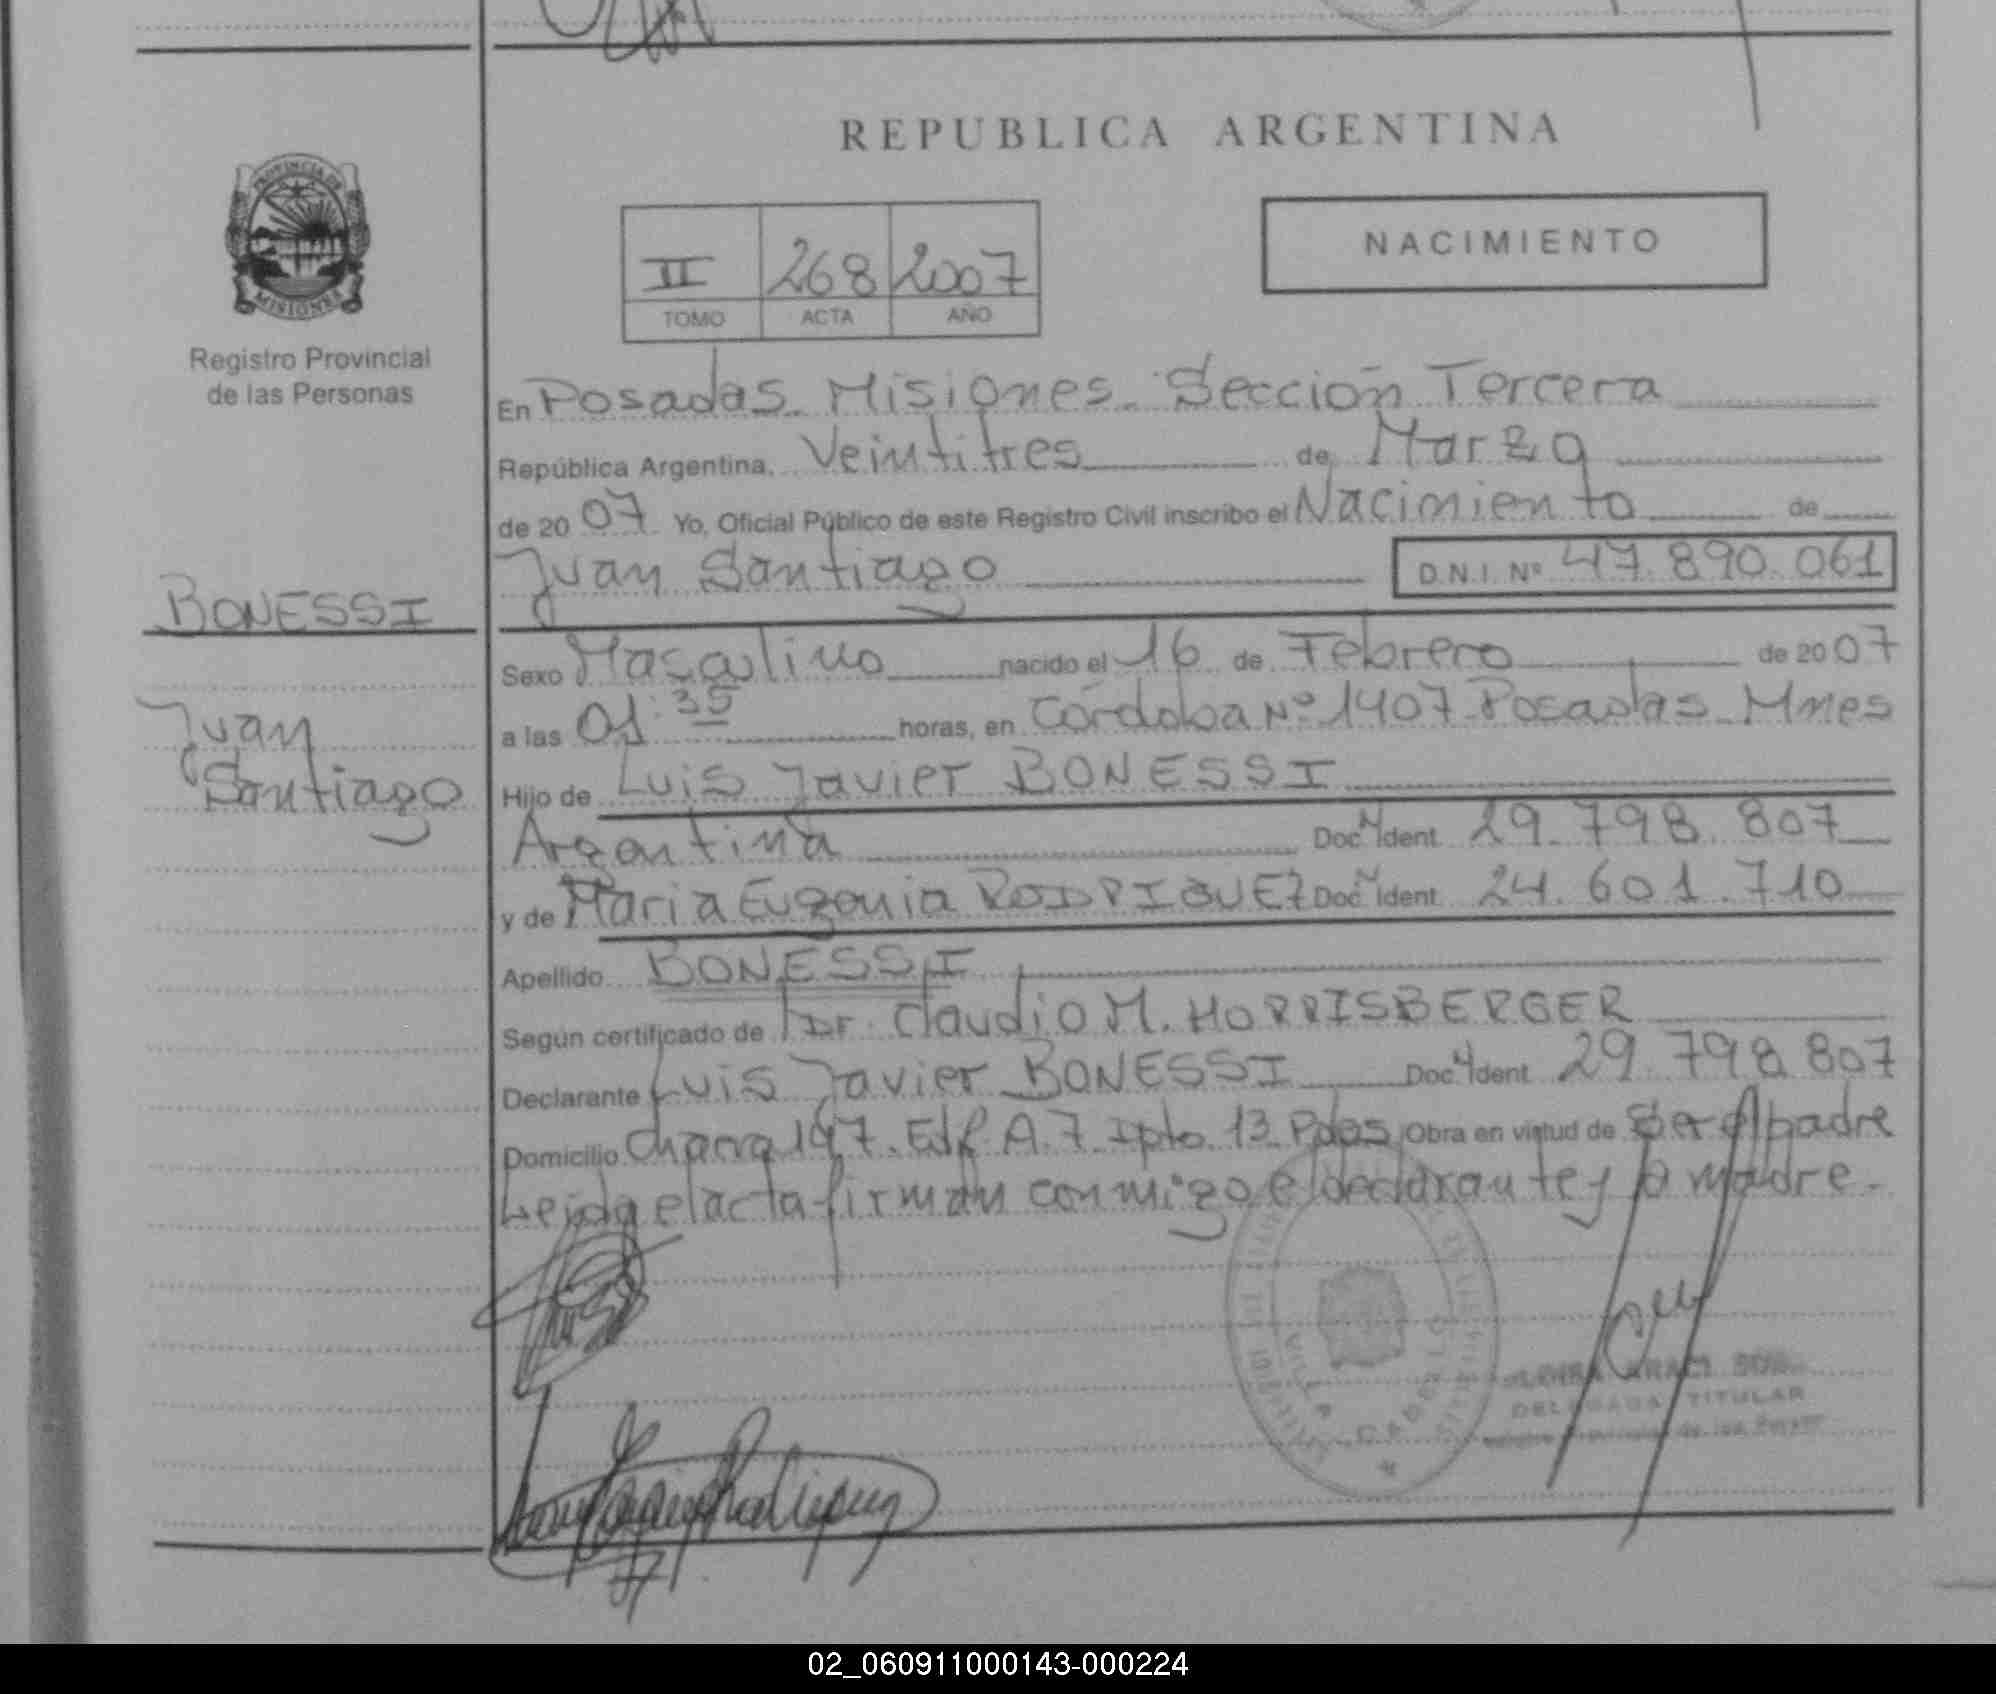 REPUBLICA ARGENTINA
PROVINCIA DE
MISIONES
Registro Provincial
de las Personas
II 268 2007
TOMO ACTA AÑO
NACIMIENTO
En Posadas. Misiones. Sección Tercera
República Argentina, Veintitres de Marzo
de 2007 Yo, Oficial Público de este Registro Civil inscribo el Nacimiento de
Juan Santiago D.N.I. Nº 47.890.061
BONESSI
Juan
Santiago
Sexo Masculino nacido el 16 de Febrero de 2007
a las 01:35 horas, en Córdoba Nº 1407 Posadas Mnes
Hijo de Luis Javier BONESSI
Argentina Doc. Ident. 29.798.807
y de Maria Eugenia RODRIGUEZ Doc. Ident. 24.601.710
Apellido BONESSI
Según certificado de Dr. Claudio M. HORRISBERGER
Declarante Luis Javier BONESSI Doc. Ident. 29.798.807
Domicilio Chacra 147. Edf. A.7 Dpto. 13 Pdas Obra en virtud de Ser el padre
Leida el acta firman conmigo el declarante y la madre.
VILLA CABELLO
DELEGADA TITULAR
02_060911000143-000224